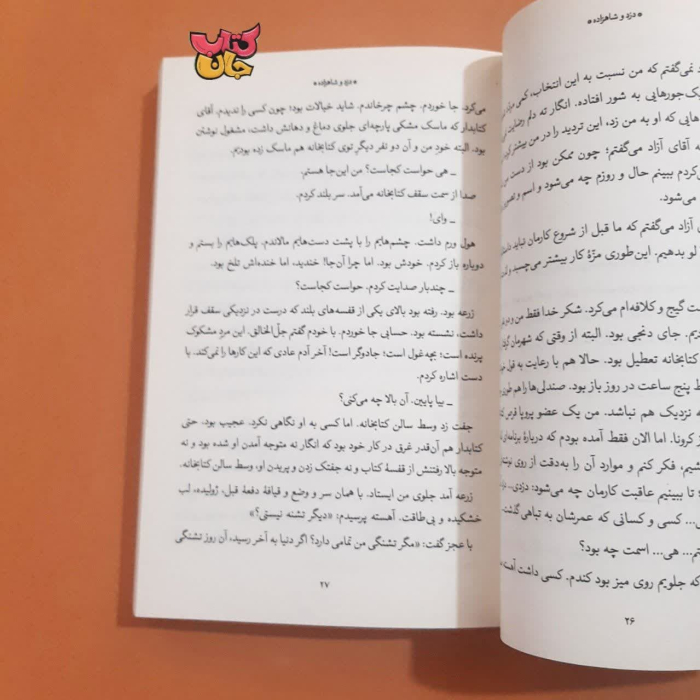 کتاب
جان
* دزد و شاهزاده *
نمی‌گفتم که من نسبت به این انتخاب، کمی
یک‌جورهایی به شور افتاده. انگار ته دلم رضایت
هایی که او به من زد، این تردید را در من بیشتر
به آقای آزاد می‌گفتم؛ چون ممکن بود از دست من
کردم ببینم حال و روزم چه می‌شود و اسم و
می‌شود.
آزاد می‌گفتم که ما قبل از شروع کارمان نباید
لو بدهیم. این‌طوری مزّهٔ کار بیشتر می‌چسبد و
ت گیج و کلافه‌ام می‌کرد. شکر خدا فقط من و
دیم. جای دنجی بود. البته از وقتی که شهرمان
کتابخانه تعطیل بود. حالا هم با رعایت به قول
ط پنج ساعت در روز باز بود. صندلی‌ها را هم
ه نزدیک هم نباشد. من یک عضو پروپا قرص
ز کرونا. اما الان فقط آمده بودم که دربارهٔ
شیم، فکر کنم و موارد آن را به‌دقت از روی
تا ببینم عاقبت کارمان چه می‌شود: دزدی...
ی... کسی و کسانی که عمرشان به تباهی
تم... هی... اسمت چه بود؟
که جلویم روی میز بود کندم. کسی داشت آهسته
۲۶
* دزد و شاهزاده *
می‌کرد. جا خوردم. چشم چرخاندم. شاید خیالات بود؛ چون کسی را ندیدم. آقای
کتابدار که ماسک مشکی پارچه‌ای جلوی دماغ و دهانش داشت، مشغول نوشتن
بود. البته خود من و آن دو نفر دیگرِ توی کتابخانه هم ماسک زده بودیم.
ـ هی حواست کجاست؟ من این‌جا هستم.
صدا از سمت سقف کتابخانه می‌آمد. سر بلند کردم.
ـ وای!
هول ورم داشت. چشم‌هایم را با پشت دست‌هایم مالاندم. پلک‌هایم را بستم و
دوباره باز کردم. خودش بود. اما چرا آن‌جا! خندید، اما خنده‌اش تلخ بود.
ـ چندبار صدایت کردم. حواست کجاست؟
زرعه بود. رفته بود بالای یکی از قفسه‌های بلند که درست در نزدیکی سقف قرار
داشت، نشسته بود. حسابی جا خوردم. با خودم گفتم جلّ‌الخالق. این مردِ مشکوک
پرنده است؛ بچه‌غول است؛ جادوگر است! آخر آدم عادی که این کارها را نمی‌کند. با
دست اشاره کردم.
ـ بیا پایین. آن بالا چه می‌کنی؟
جفت زد وسط سالن کتابخانه. اما کسی به او نگاهی نکرد. عجیب بود. حتی
کتابدار هم آن‌قدر غرق در کار خود بود که انگار نه متوجه آمدن او شده بود و نه
متوجه بالا رفتنش از قفسهٔ کتاب و نه جفتک زدن و پریدن او، وسط سالن کتابخانه.
زرعه آمد جلوی من ایستاد. با همان سر و وضع و قیافهٔ دفعهٔ قبل، ژولیده، لب
خشکیده و بی‌طاقت. آهسته پرسیدم: «دیگر تشنه نیستی؟»
با عجز گفت: «مگر تشنگی من تمامی دارد؟ اگر دنیا به آخر رسید، آن روز تشنگی
۲۷